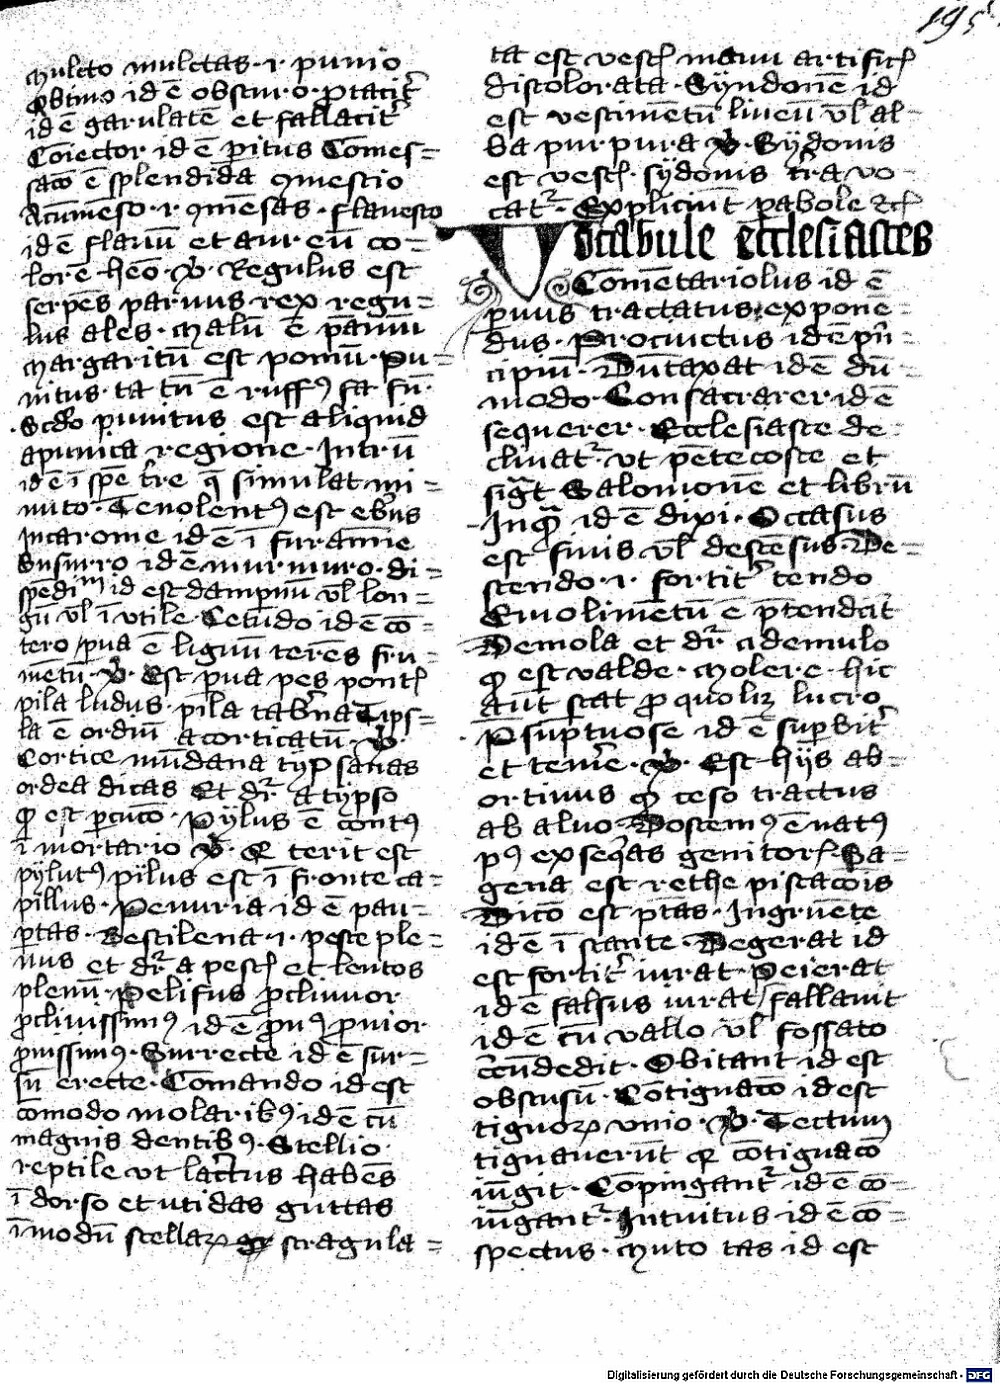 195
Mulcto mulctas · i · punio
Obtino id ē obscuro · ptacit͛
id ē garulatē et fallacit͛
Coiector id ē p̄itus Comes=
saco ē splendida ꝯmestio
Acūmeso · i · ꝯmēsas · flauesco
id ē flauū et aureū co=
lorē heō · v̄ · Regulus est
serpēs paruus rex regu=
lus ales · Malū ē pāniū
Margaritū est pomū · Pu=
nitus · ta tū ē ruffꝯ fa fū ·
Scdo punitus est aliquid
apunica regione · Intrū
id ē ī spē tre q̄ simulat mi=
nuto · Tenolentꝯ est ebriꝯ
Incarome id ē ī furāmīe
Susurro id ē murmuro · di=
spēdiᵐ id est dampnū vl̄ lon=
gū vl̄ ī vtile · Cetūdo id ē cō=
tero pua ē lignū terēs fru=
mētū · v̄ · Est pua pes pont͛
pila ludus · pila tab͛na Tips=
la ē ordiū acorticatū · v̄ ·
Cortice mūdana typsanas
ordea dicas Et dr͛ a typso
ꝙ est pcuco · Pylus ē contꝯ
ī mortario v̄ · Qꝛ terit est
pylutꝯ pilus est ī fronte ca=
pillus · Penuria id ē pau=
p̄tas · Bestilena · i · peste ple=
nus et dr͛ a pest͛ et lentos
plenū · Pelifus pcliuior
pcliuissimꝯ id ē pnꝯ pnior
pnissimꝯ · Surrecte id ē sur=
sū erecte · Comando id est
comodo molaribꝯ id ē cū
magnis dentibꝯ · Stellio
reptile vt lacertus habēs
ī dorso et vtidas guttas
ī modū stellaꝝ stragula=
ta est vest͛ manu artific͛
discolorata · Syndonē id
est vestimētū lineū vl̄ al=
ba purpura v̄ · Sydonis
est vest͛ · sydonis tra vo=
catr͛ · Expliciūt pabole &c͛
Vocabule ecclesiastes
Comētariolus id ē
puus tractatus expone=
dus · Procuictus id ē pn=
cipiū · Dūtaxat id ē dū=
modo · Consacrarer id ē
sequerer · Ecclesiaste de=
clinatr͛ vt pētecoste et
sigt Salomonē et librū
Inqᷓ id ē dixi · Occasus
est finis vl̄ descēsus · De=
stendo · i · fortit͛ tendo
Emolimētū ē ptendat͛
Demola et dr͛ a demulo
ꝙ est valde · Molere · hic
aūt stat ꝓ quolibꝫ lucro
Psūptuose id ē supbit͛
et teme͛ · v̄ · Est hijs ab=
ortiuus ꝙ ceso tractus
ab aluo Postemꝯ ē natꝯ
pꝯ exseqᷓas genitor͛ · Sa=
gena est rethe piscacois
Dico est ptās · Ingruēte
id ē īstante · Degerat id
est fortit͛ iurat · Peierat
id ē falsus iurat / fallauit
id ē cū vallo vl̄ fossato
Obitant id est
obscusū · Cōtignaco id est
tignoꝝ vnio · v̄ · Tectum
tignauerūt qꝛ cōtignaco
iūgit · Cōpingantr͛ id ē co=
iūgantr͛ · Intuitus id ē cō=
spectus · Muto tas id est
Digitalisierung gefördert durch die Deutsche Forschungsgemeinschaft - DFG